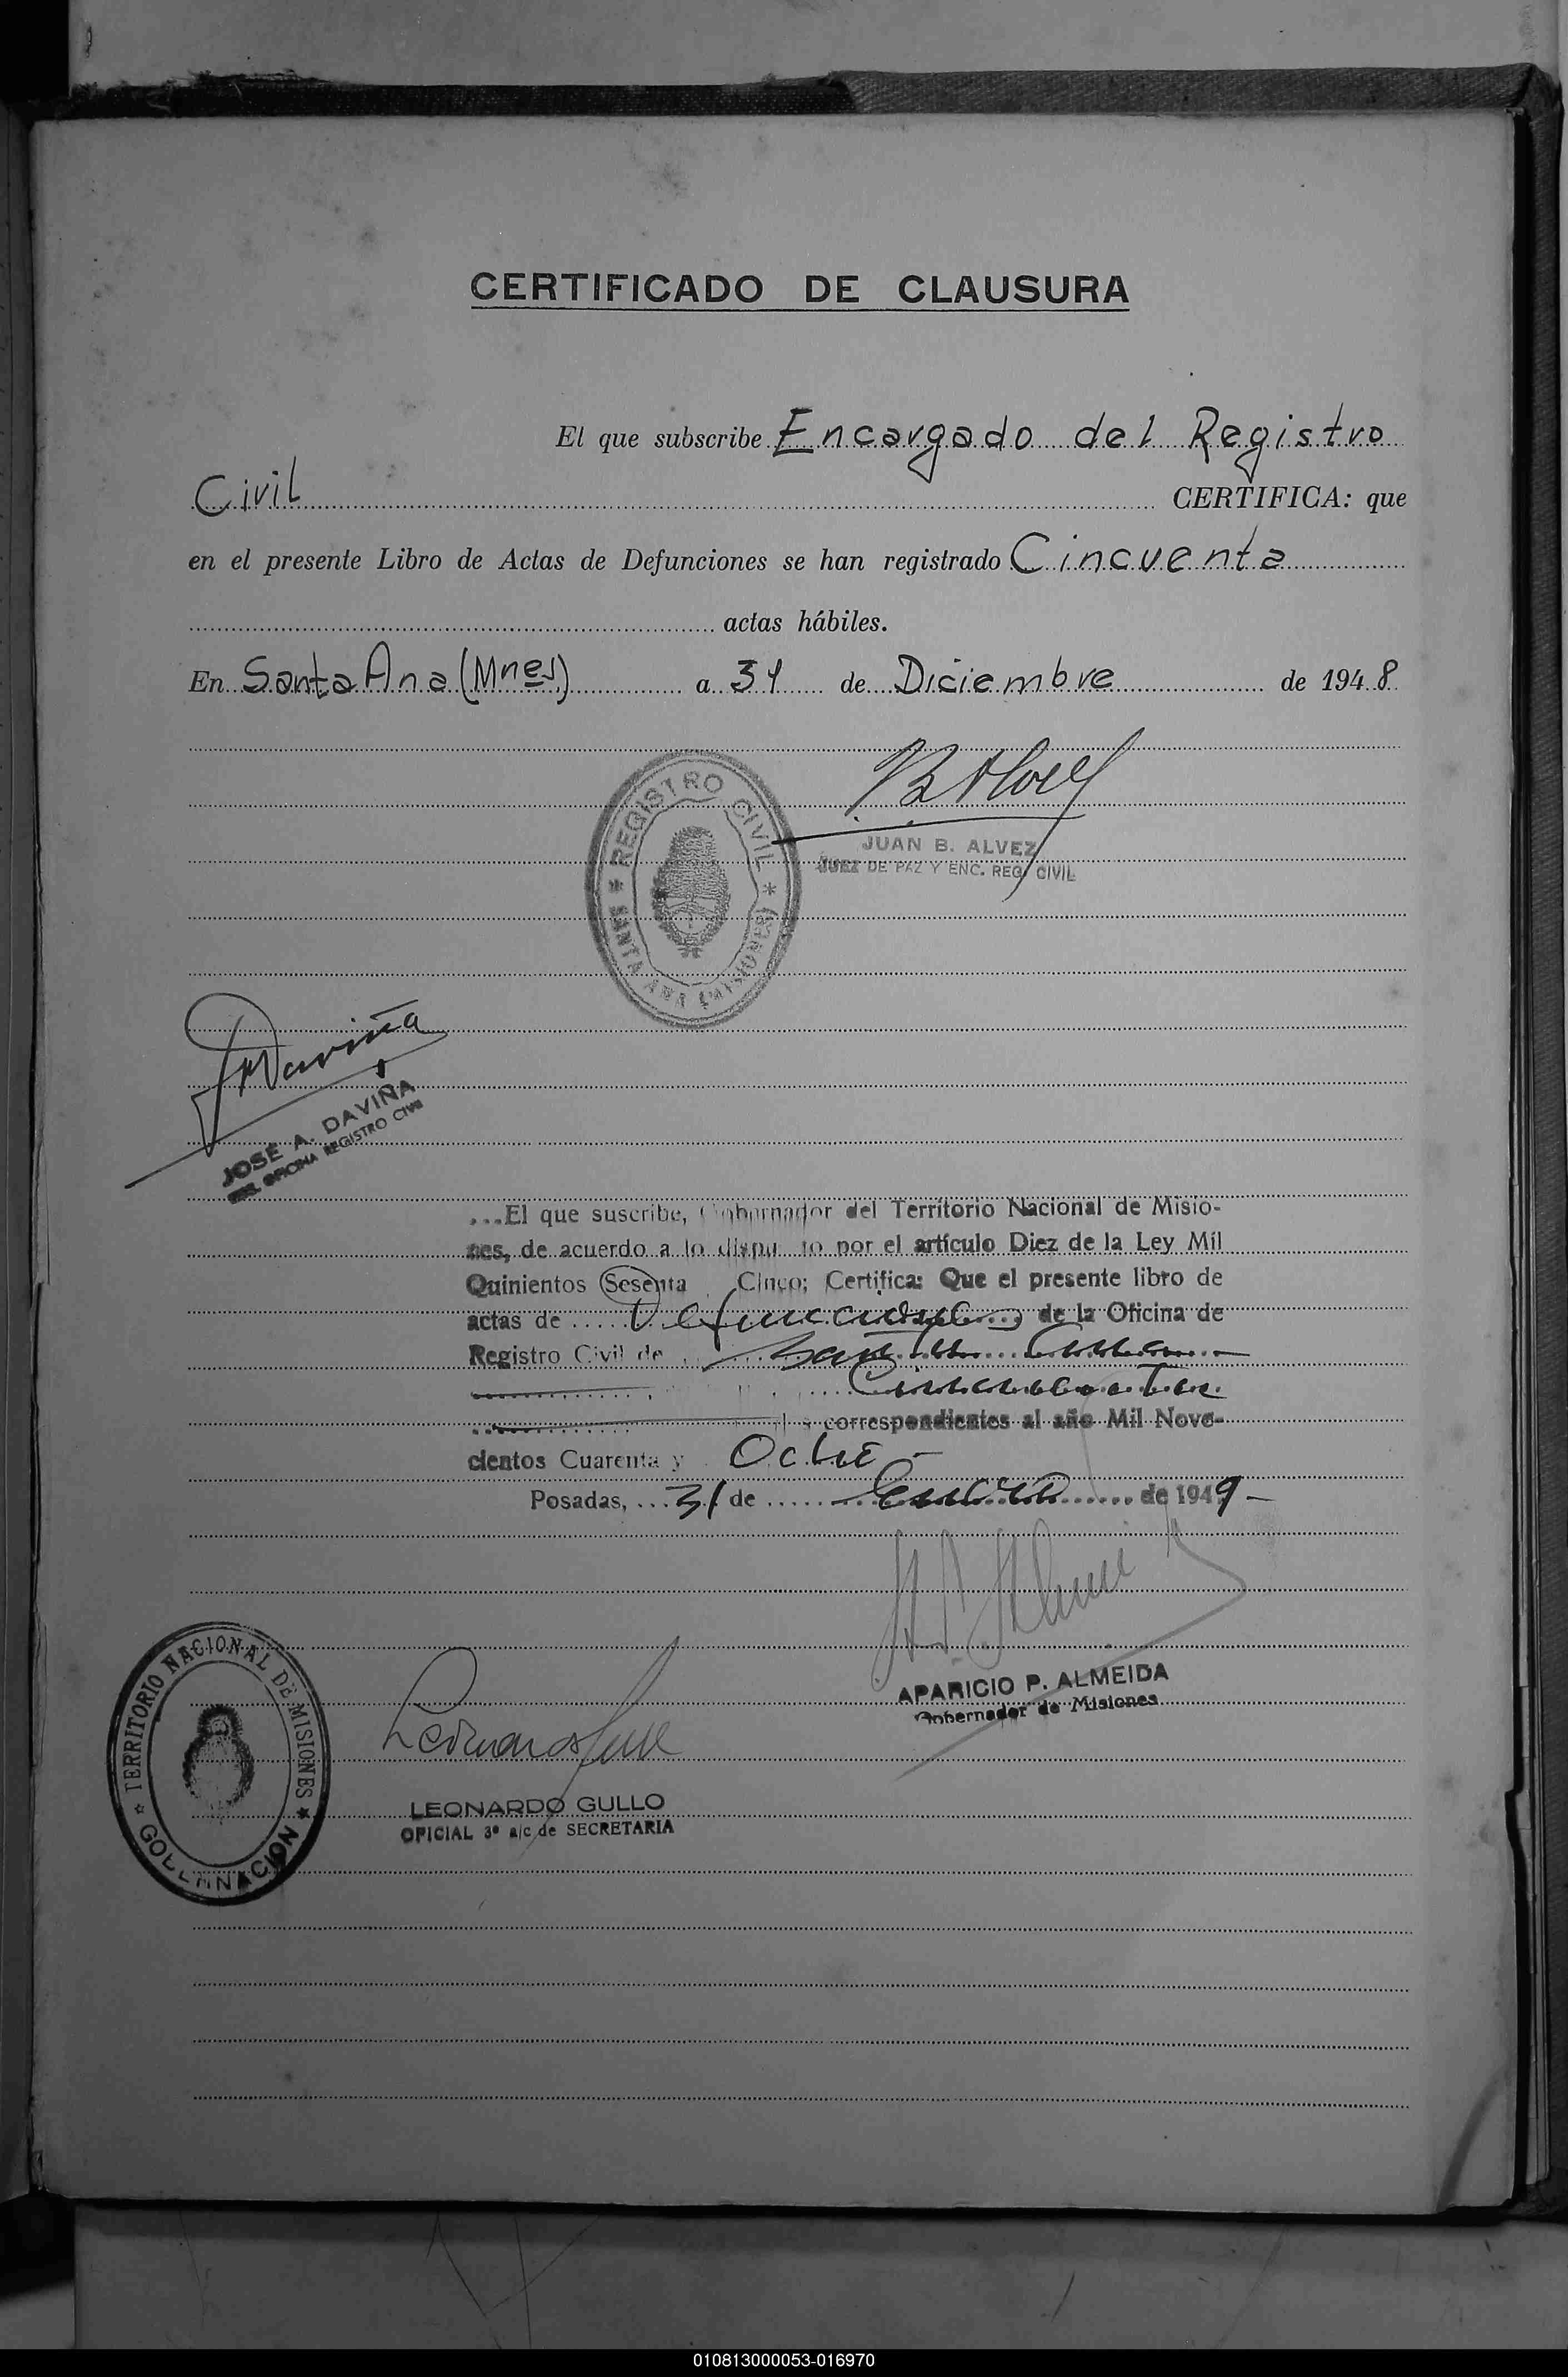 CERTIFICADO DE CLAUSURA
El que subscribe Encargado del Registro
Civil CERTIFICA: que
en el presente Libro de Actas de Defunciones se han registrado Cincuenta
actas hábiles.
En Santa Ana (Mnes) a 31 de Diciembre de 1948
REGISTRO CIVIL
SANTA ANA (MISIONES)
JUAN B. ALVEZ
JUEZ DE PAZ Y ENC. REG. CIVIL
JOSÉ A. DAVIÑA
OFICINA REGISTRO CIVIL
...El que suscribe, Gobernador del Territorio Nacional de Misio-
nes, de acuerdo a lo dispuesto por el artículo Diez de la Ley Mil
Quinientos Sesenta Cinco; Certifica: Que el presente libro de
actas de Defunciones de la Oficina de
Registro Civil de Santa Ana
Cincuenta
correspondientes al año Mil Nove-
cientos Cuarenta y Ocho -
Posadas, 31 de Enero de 1949 -
APARICIO P. ALMEIDA
Gobernador de Misiones
TERRITORIO NACIONAL DE MISIONES
GOBERNACION
LEONARDO GULLO
OFICIAL 3º a/c de SECRETARIA
010813000053-016970